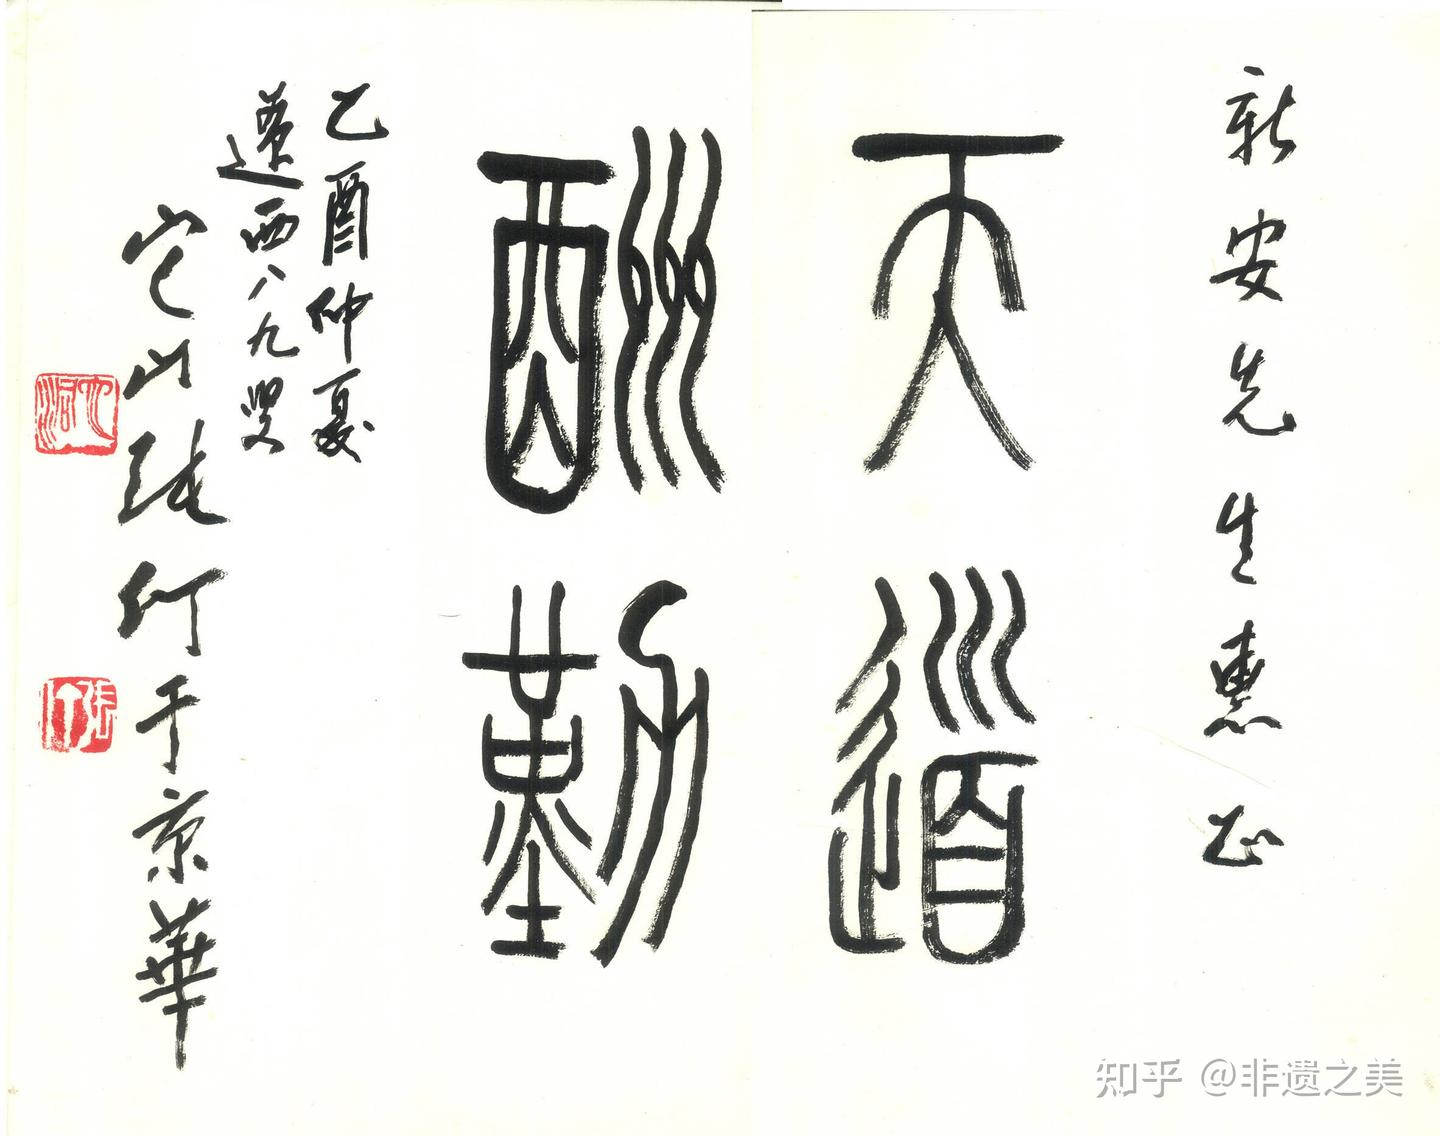 新安先生惠正
天道
酬勤
乙酉仲夏
遼西八九叟
它山張仃于京華
張仃
知乎 @非遗之美